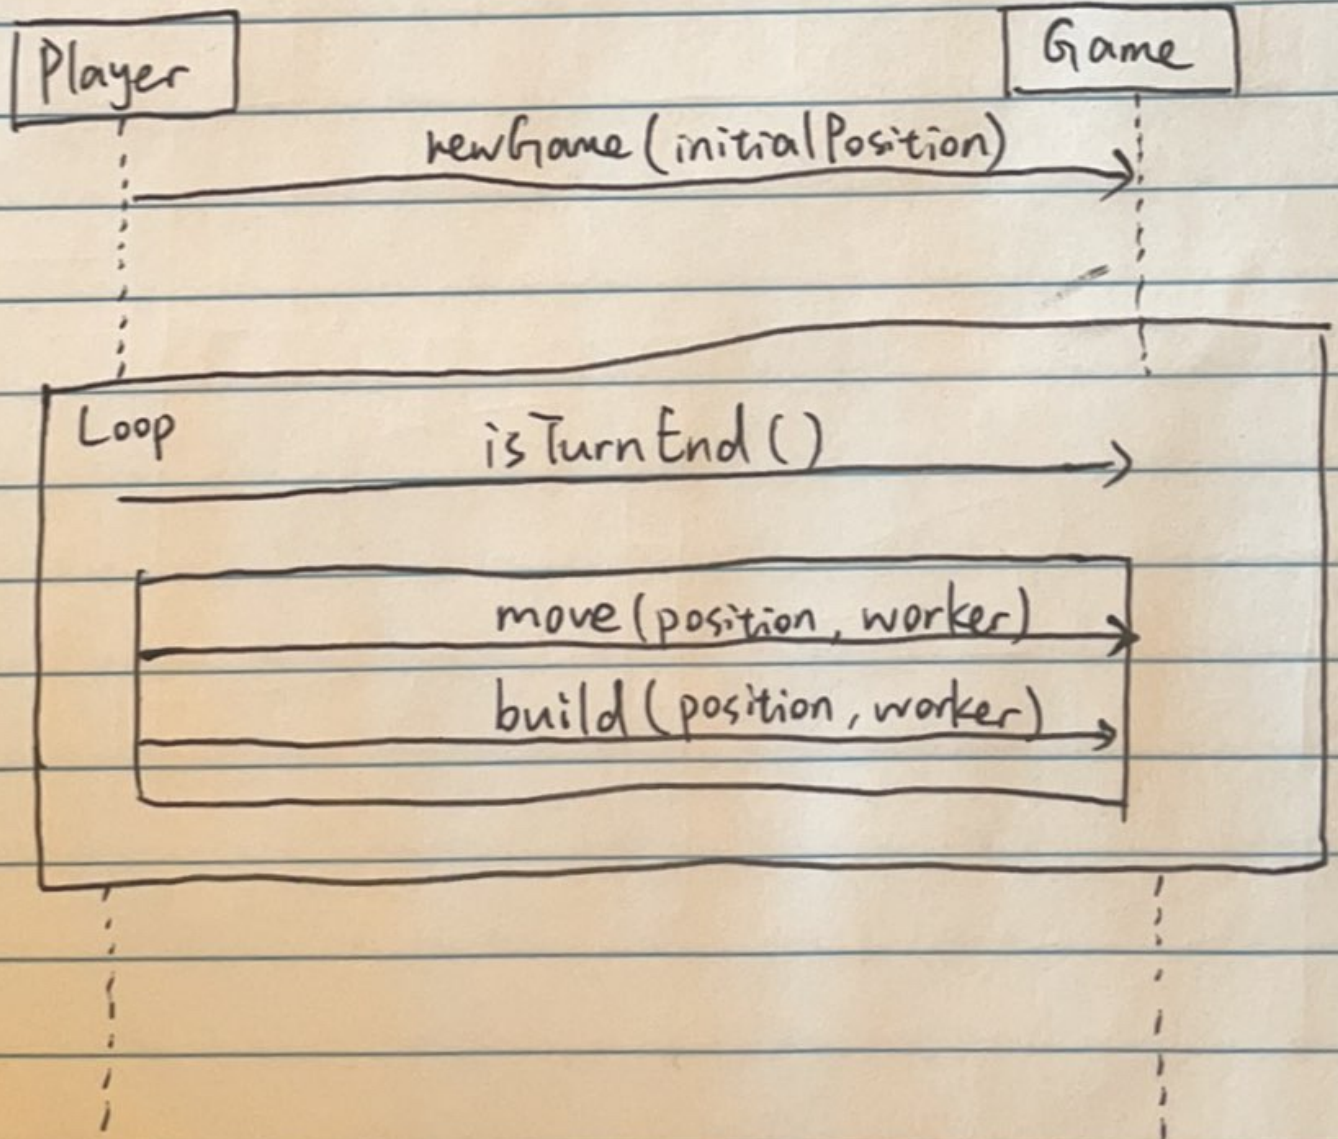 Player
Game
newGame(initialPosition)
Loop
isTurnEnd()
move(position, worker)
build(position, worker)